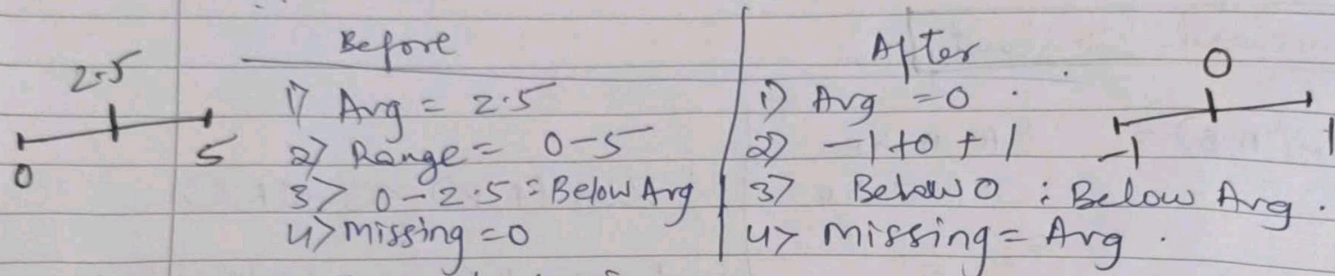 Before
After
2.5
0
5
1) Avg = 2.5
2) Range = 0-5
3) 0-2.5 : Below Avg
4) Missing = 0
1) Avg = 0 .
2) -1 to + 1
3) Below 0 : Below Avg .
4) Missing = Avg .
0
-1
1